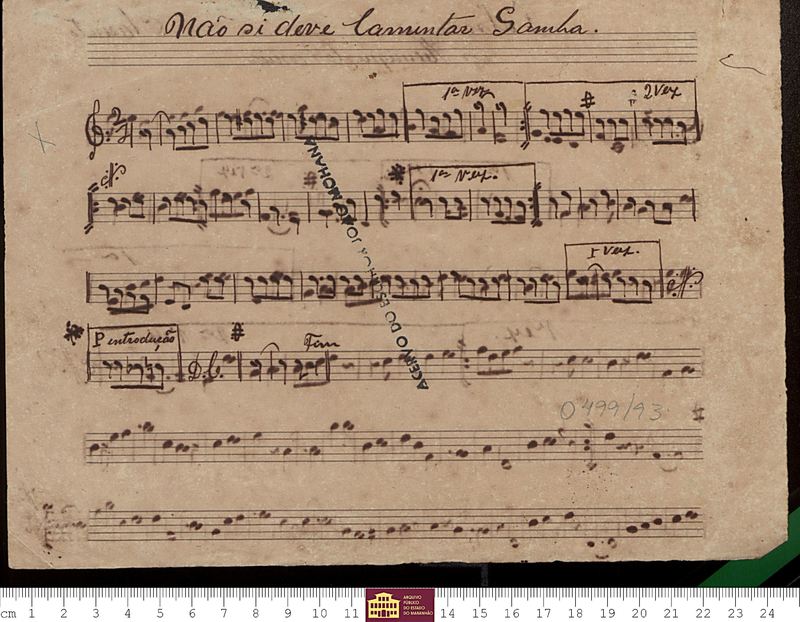 Não si deve lamentar Samba.
1ª Vez
2 Vez
1ª Vez.
1 Vez.
P introdução
D.C.
Fim
ACERVO DO ESC JOÃO MOHANA
0499/93
cm 1 2 3 4 5 6 7 8 9 10 11 14 15 16 17 18 19 20 21 22 23 24
ARQUIVO
PÚBLICO
DO ESTADO
DO MARANHÃO